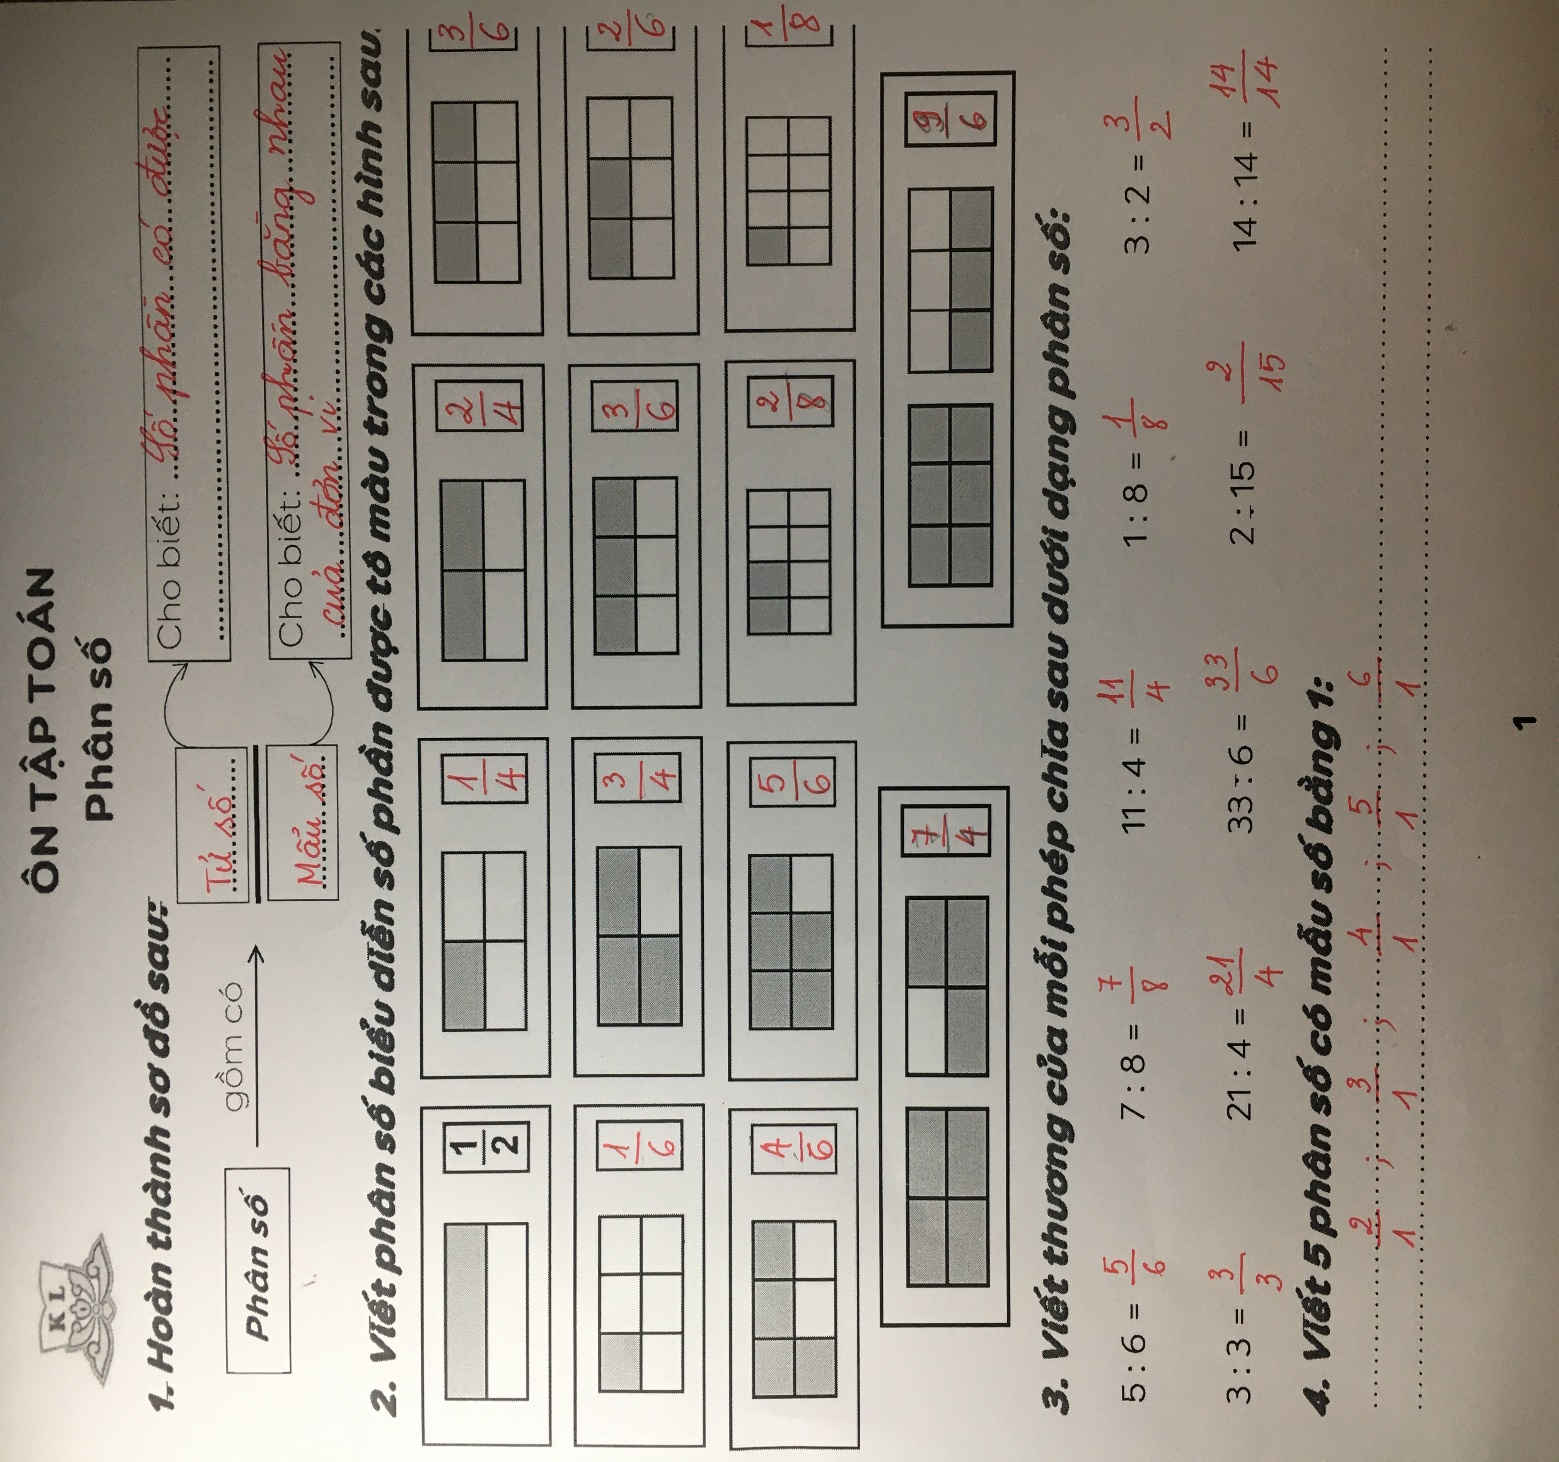 KL
ÔN TẬP TOÁN
Phân số
1. Hoàn thành sơ đồ sau:
Phân số
gồm có
Tử số
Mẫu số
Cho biết: Số phần có được
Cho biết: Số phần bằng nhau
của đơn vị
2. Viết phân số biểu diễn số phần được tô màu trong các hình sau.
1/2 1/4 2/4 3/6
1/6 3/4 3/6 2/6
4/6 5/6 2/8 1/8
7/4 9/6
3. Viết thương của mỗi phép chia sau dưới dạng phân số:
5 : 6 = 5/6 7 : 8 = 7/8 11 : 4 = 11/4 1 : 8 = 1/8 3 : 2 = 3/2
3 : 3 = 3/3 21 : 4 = 21/4 33 : 6 = 33/6 2 : 15 = 2/15 14 : 14 = 14/14
4. Viết 5 phân số có mẫu số bằng 1:
2/1 ; 3/1 ; 4/1 ; 5/1 ; 6/1
1